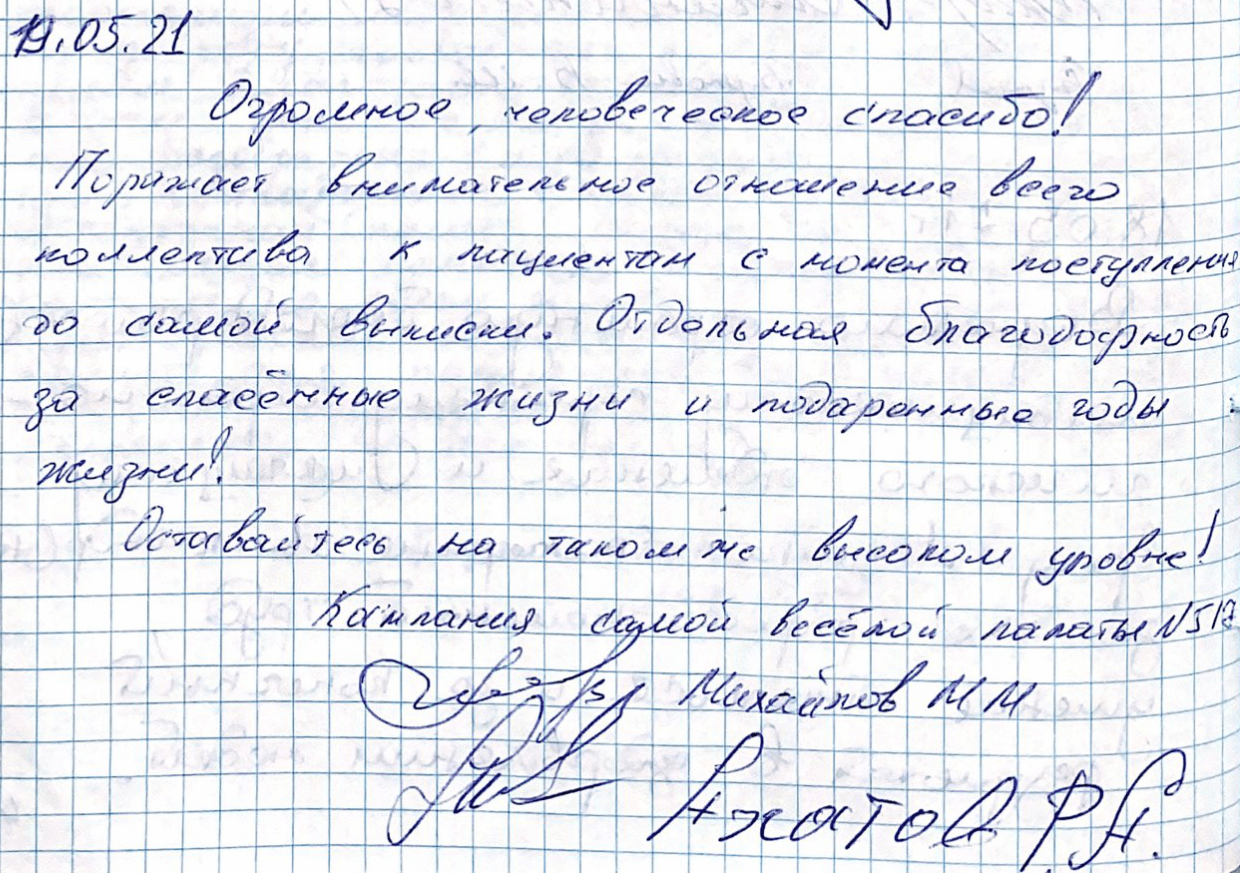 19.05.21
Огромное, человеческое спасибо!
Поражает внимательное отношение всего
коллектива к пациентам с момента поступления
до самой выписки. Отдельная благодарность
за спасённые жизни и подаренные годы
жизни!
Оставайтесь на таком же высоком уровне!
Компания самой весёлой палаты N517
Михайлов М М
Ахатов Р.А.